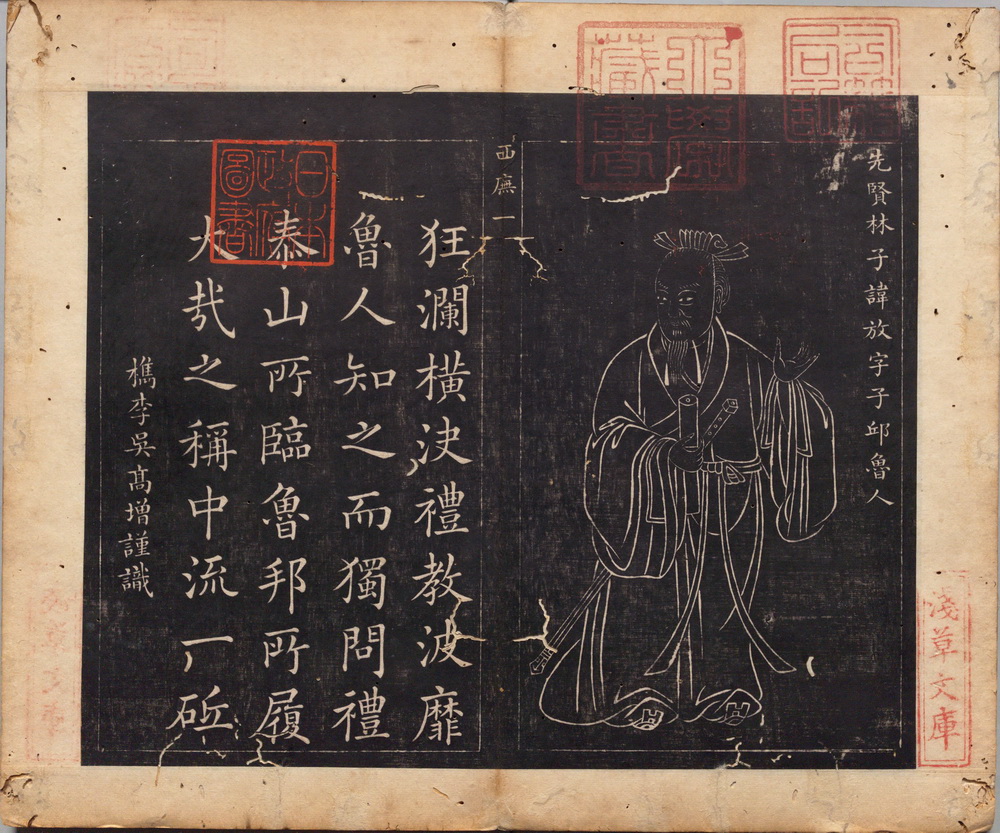 先賢林子諱放字子邱魯人
西廡一
狂瀾橫決禮教波靡
魯人知之而獨問禮
泰山所臨魯邦所履
大哉之稱中流一砥
檇李吳髙增謹識
日本政府圖書
淺草文庫